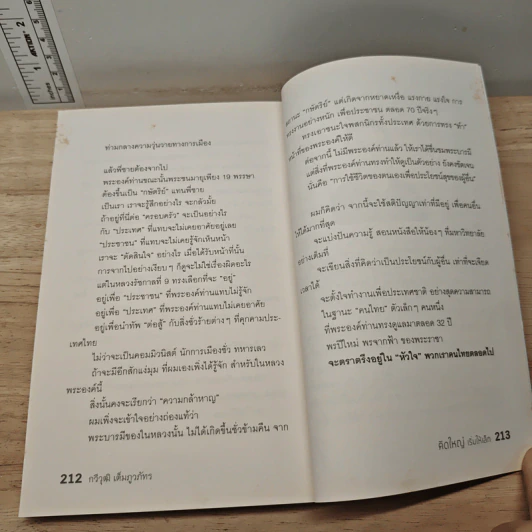 ท่ามกลางความวุ่นวายทางการเมือง
แล้วพี่ชายต้องจากไป
พระองค์ท่านขณะนั้นพระชนมายุเพียง 19 พรรษา
ต้องขึ้นเป็น "กษัตริย์" แทนพี่ชาย
เป็นเรา เราจะรู้สึกอย่างไร จะกลัวมั้ย
ถ้าอยู่ที่นี่ต่อ "ครอบครัว" จะเป็นอย่างไร
กับ "ประเทศ" ที่แทบจะไม่เคยอาศัยอยู่เลย
"ประชาชน" ที่แทบจะไม่เคยรู้จักเห็นหน้า
เราจะ "ตัดสินใจ" อย่างไร เมื่อได้รับหน้าที่นั้น
การจากไปอย่างเงียบๆ ก็ดูจะไม่ใช่เรื่องผิดอะไร
แต่ในหลวงรัชกาลที่ 9 ทรงเลือกที่จะ "อยู่"
อยู่เพื่อ "ประชาชน" ที่พระองค์ท่านแทบไม่รู้จัก
อยู่เพื่อ "ประเทศ" ที่พระองค์ท่านแทบไม่เคยอาศัย
อยู่เพื่อนำทัพ "ต่อสู้" กับสิ่งชั่วร้ายต่างๆ ที่คุกคามประ-
เทศไทย
ไม่ว่าจะเป็นคอมมิวนิสต์ นักการเมืองชั่ว ทหารเลว
ถ้าจะมีอีกสักแง่มุม ที่ผมเองเพิ่งได้รู้จัก สำหรับในหลวง
พระองค์นี้
สิ่งนั้นคงจะเรียกว่า "ความกล้าหาญ"
ผมเพิ่งจะเข้าใจอย่างถ่องแท้ว่า
พระบารมีของในหลวงนั้น ไม่ได้เกิดขึ้นชั่วข้ามคืน จาก
212 กวีวุฒิ เต็มภูวภัทร
"กษัตริย์" แต่เกิดจากหยาดเหงื่อ แรงกาย แรงใจ การ
ทรงงานอย่างหนัก เพื่อประชาชน ตลอด 70 ปีจริงๆ
ทรงเอาชนะใจพสกนิกรทั้งประเทศ ด้วยการทรง "ทำ"
หน้าที่ของพระองค์ให้ดี
ต่อจากนี้ ไม่มีพระองค์ท่านแล้ว ให้เราได้ชื่นชมพระบารมี
แต่สิ่งที่พระองค์ท่านทรงทำให้ดูเป็นตัวอย่าง ยังคงชัดเจน
นั่นคือ "การใช้ชีวิตของตนเองเพื่อประโยชน์สุขของผู้อื่น"
ผมก็คิดว่า จากนี้จะใช้สติปัญญาเท่าที่มีอยู่ เพื่อคนอื่น
ให้ได้มากที่สุด
จะแบ่งปันความรู้ สอนหนังสือให้น้องๆ ที่มหาวิทยาลัย
อย่างเต็มที่
จะเขียนสิ่งที่คิดว่าเป็นประโยชน์กับผู้อื่น เท่าที่จะเจียด
เวลาได้
จะตั้งใจทำงานเพื่อประเทศชาติ อย่างสุดความสามารถ
ในฐานะ "คนไทย" ตัวเล็กๆ คนหนึ่ง
ที่พระองค์ท่านทรงดูแลมาตลอด 32 ปี
พรปีใหม่ พรจากฟ้า ของพระราชา
จะตราตรึงอยู่ใน "หัวใจ" พวกเราคนไทยตลอดไป
คิดใหญ่ เริ่มให้เล็ก 213